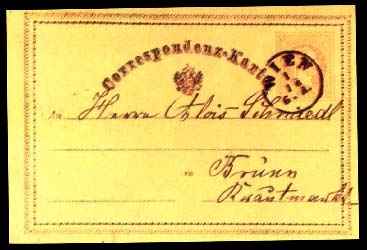 Correspondenz-Karte
WIEN
1
10
An Herrn Alois Schmiedl
in Brünn
Krautmarkt